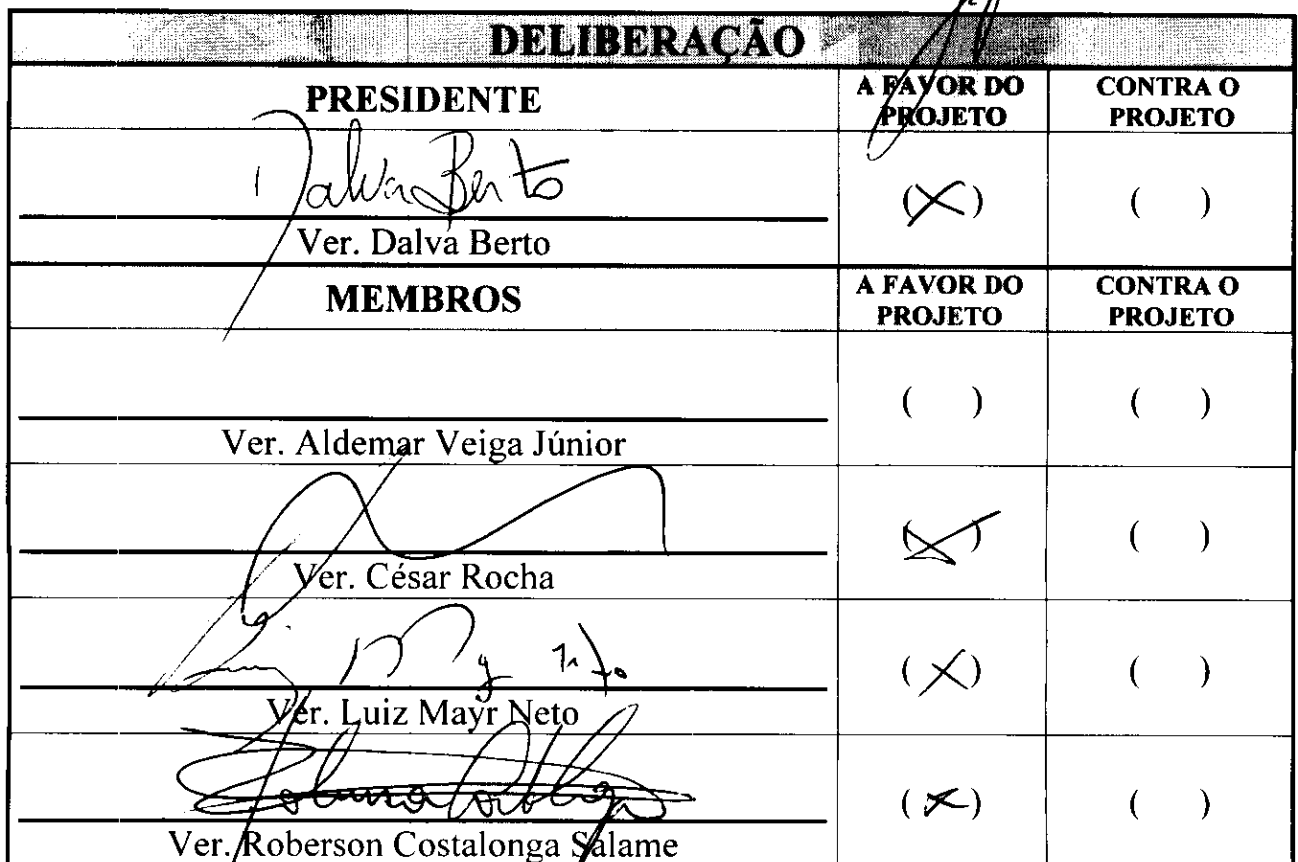 DELIBERAÇÃO
PRESIDENTE
A FAVOR DO PROJETO
CONTRA O PROJETO
Dalva Berto
(X)
( )
Ver. Dalva Berto
MEMBROS
A FAVOR DO PROJETO
CONTRA O PROJETO
( )
( )
Ver. Aldemar Veiga Júnior
(X)
( )
Ver. César Rocha
(X)
( )
Ver. Luiz Mayr Neto
(X)
( )
Ver. Roberson Costalonga Salame